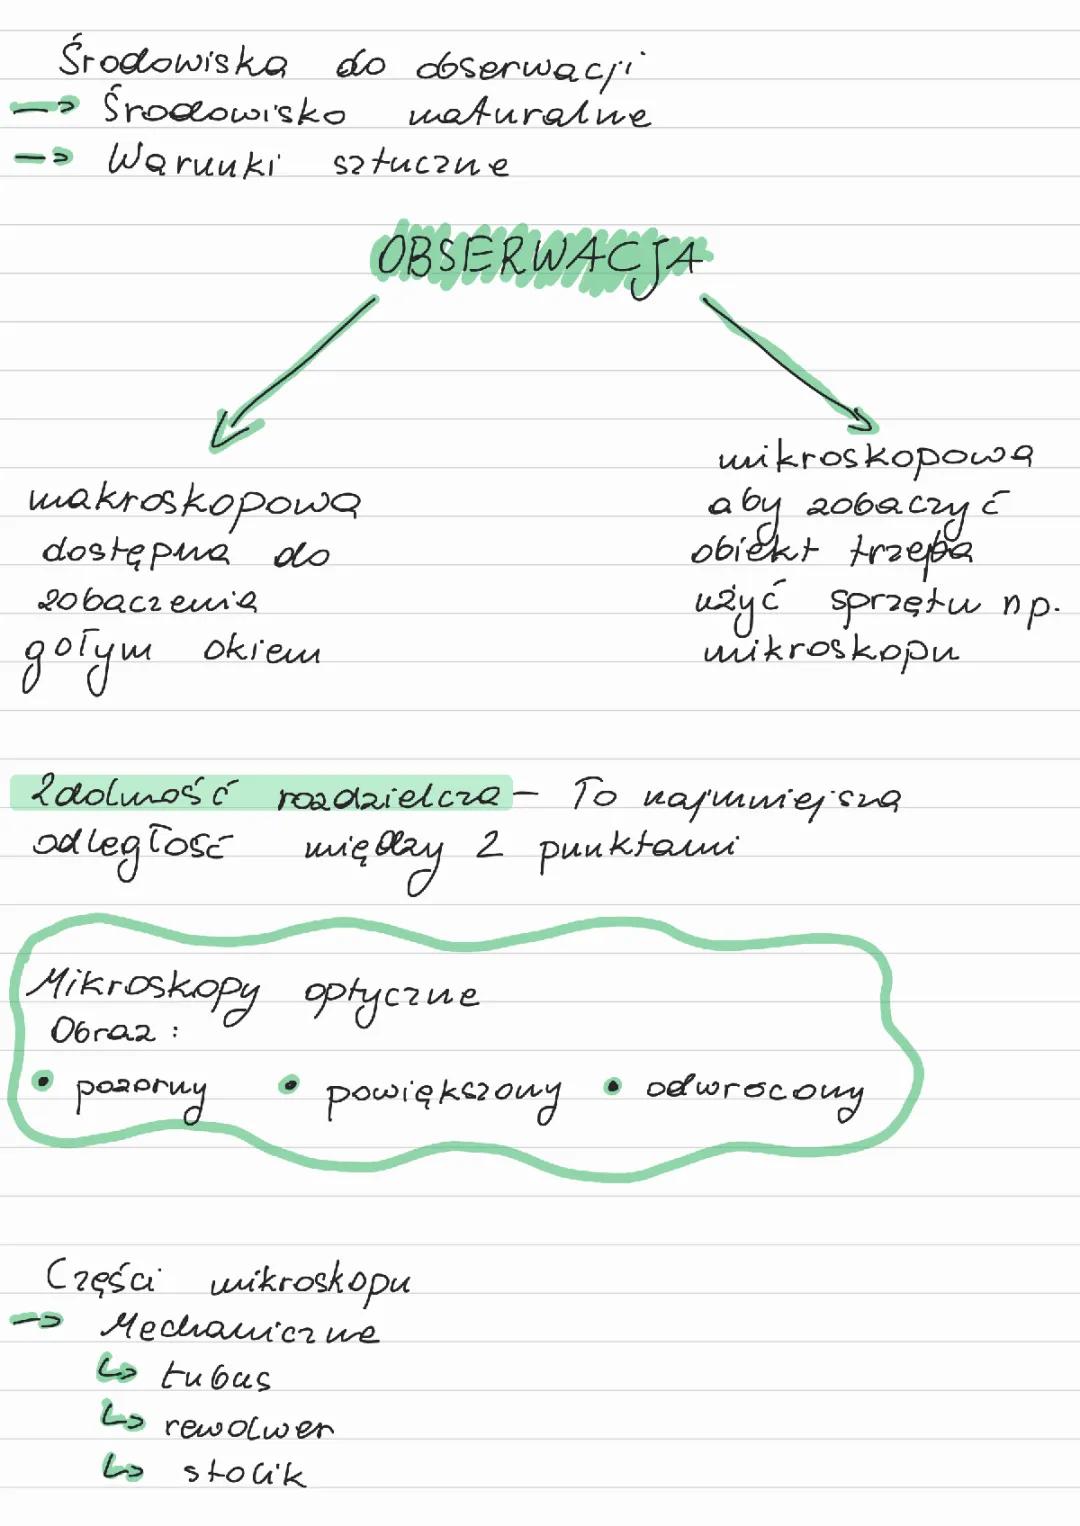 Środowiska do obserwacji
→ Środowisko naturalne
→ Warunki sztuczne
OBSERWACJA
makroskopowa
dostępna do
zobaczenia
gołym okiem
mikroskopowa
aby zobaczyć
obiekt trzeba
użyć sprzętu np.
mikroskopu
Zdolność rozdzielcza - To najmniejsza
odległość między 2 punktami
Mikroskopy optyczne
Obraz:
• pozorny • powiększony • odwrócony
Części mikroskopu
→ Mechaniczne
↳ tubus
↳ rewolwer
↳ stolik